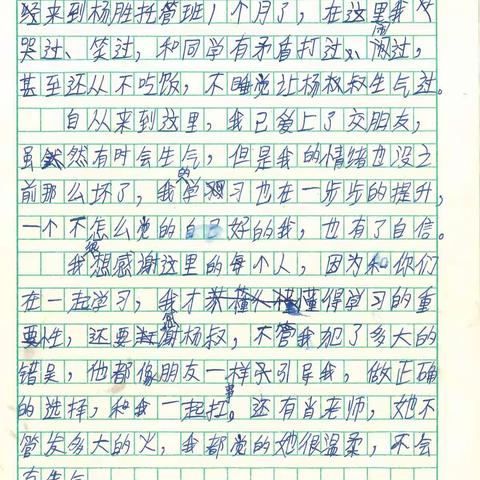 经来到杨胜托管班1个月了，在这里我
哭过、笑过，和同学有矛盾打过、闹过，
甚至还从不吃饭，不睡觉让杨叔叔生气过。
自从来到这里，我已爱上了交朋友，
虽然有时会生气，但是我的情绪也没之
前那么坏了，我的学习也在一步步的提升，
一个不怎么觉的自己好的我，也有了自信。
我很想感谢这里的每个人，因为和你们
在一起学习，我才懂得学习的重
要性，还要感谢杨叔，不管我犯了多大的
错吴，他都像朋友一样来引导我，做正确
的选择，和我一起扛事。还有肖老师，她不
管发多大的火，我都觉的她很温柔，不会
有生气